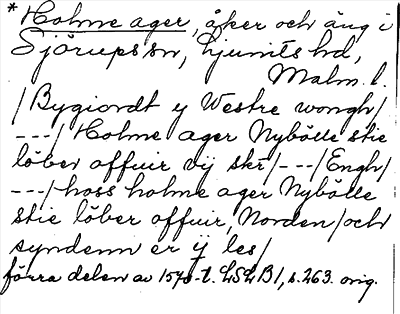 * Holme ager, åker och äng i
Sjörups sn, Ljunits hd,
Malm. l.
/Bygiordt y Westre wongh/
---/Holme ager Nybölle stie
löber offuir vij skr/---/Engh/
---/hoss holme ager Nybölle
stie löber offuir, Norden/och
syndenn er ij les/
förra delen av 1570-t. LSLB1, s. 263. orig.